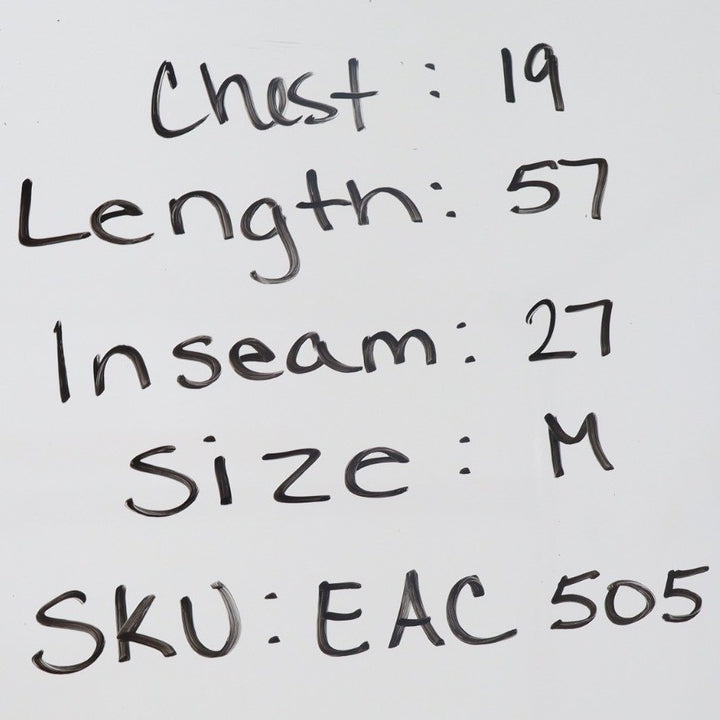 Chest: 19
Length: 57
Inseam: 27
Size: M
SKU: EAC 505